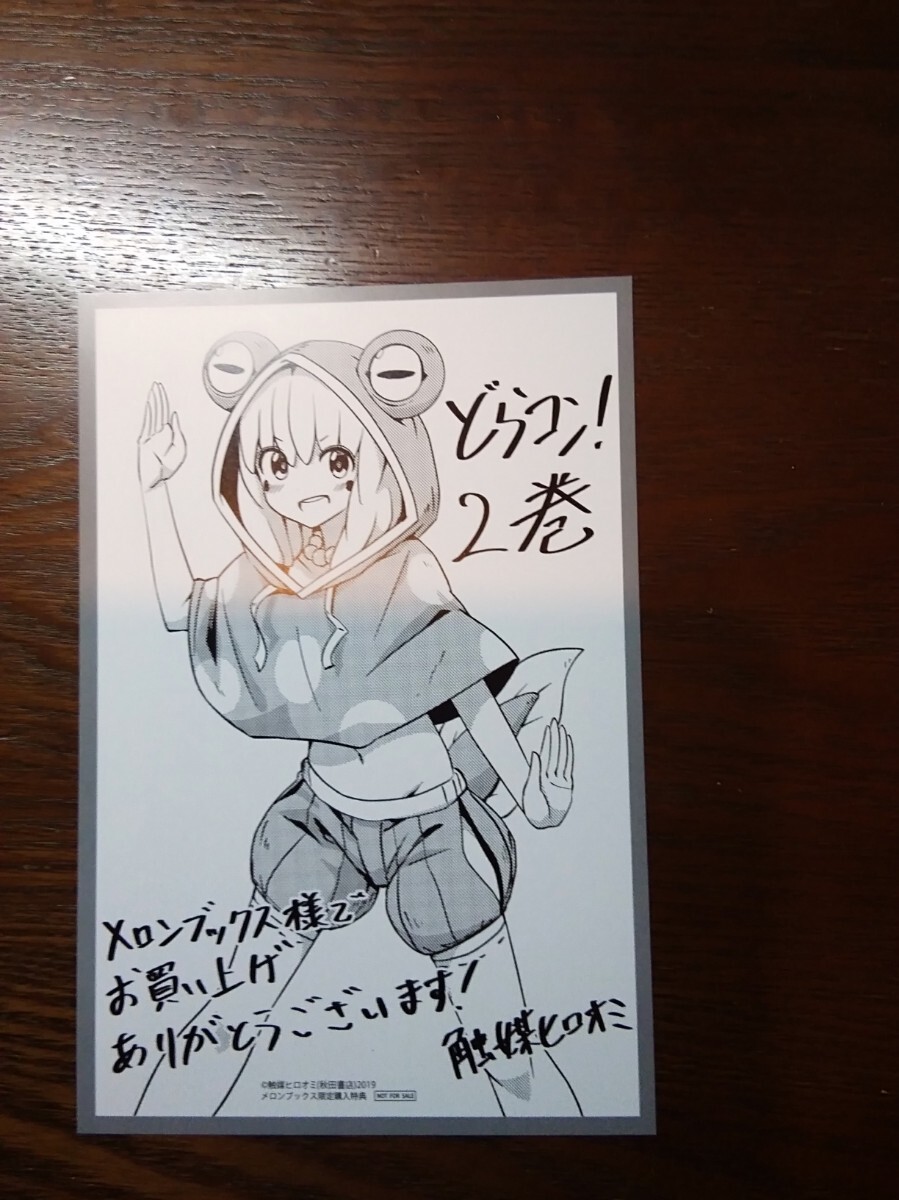 どらコン!
2巻
メロンブックス様で
お買い上げ
ありがとうございます!
触媒ヒロオミ
©触媒ヒロオミ(秋田書店)2019
メロンブックス限定購入特典 NOT FOR SALE